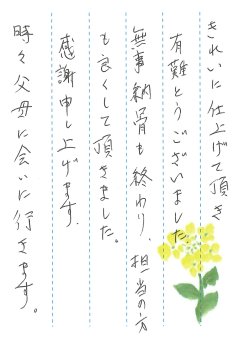 きれいに仕上げて頂き
有難とうございました。
無事納骨も終わり、担当の方
も良くして頂きました。
感謝申し上げます。
時々父母に会いに行きます。